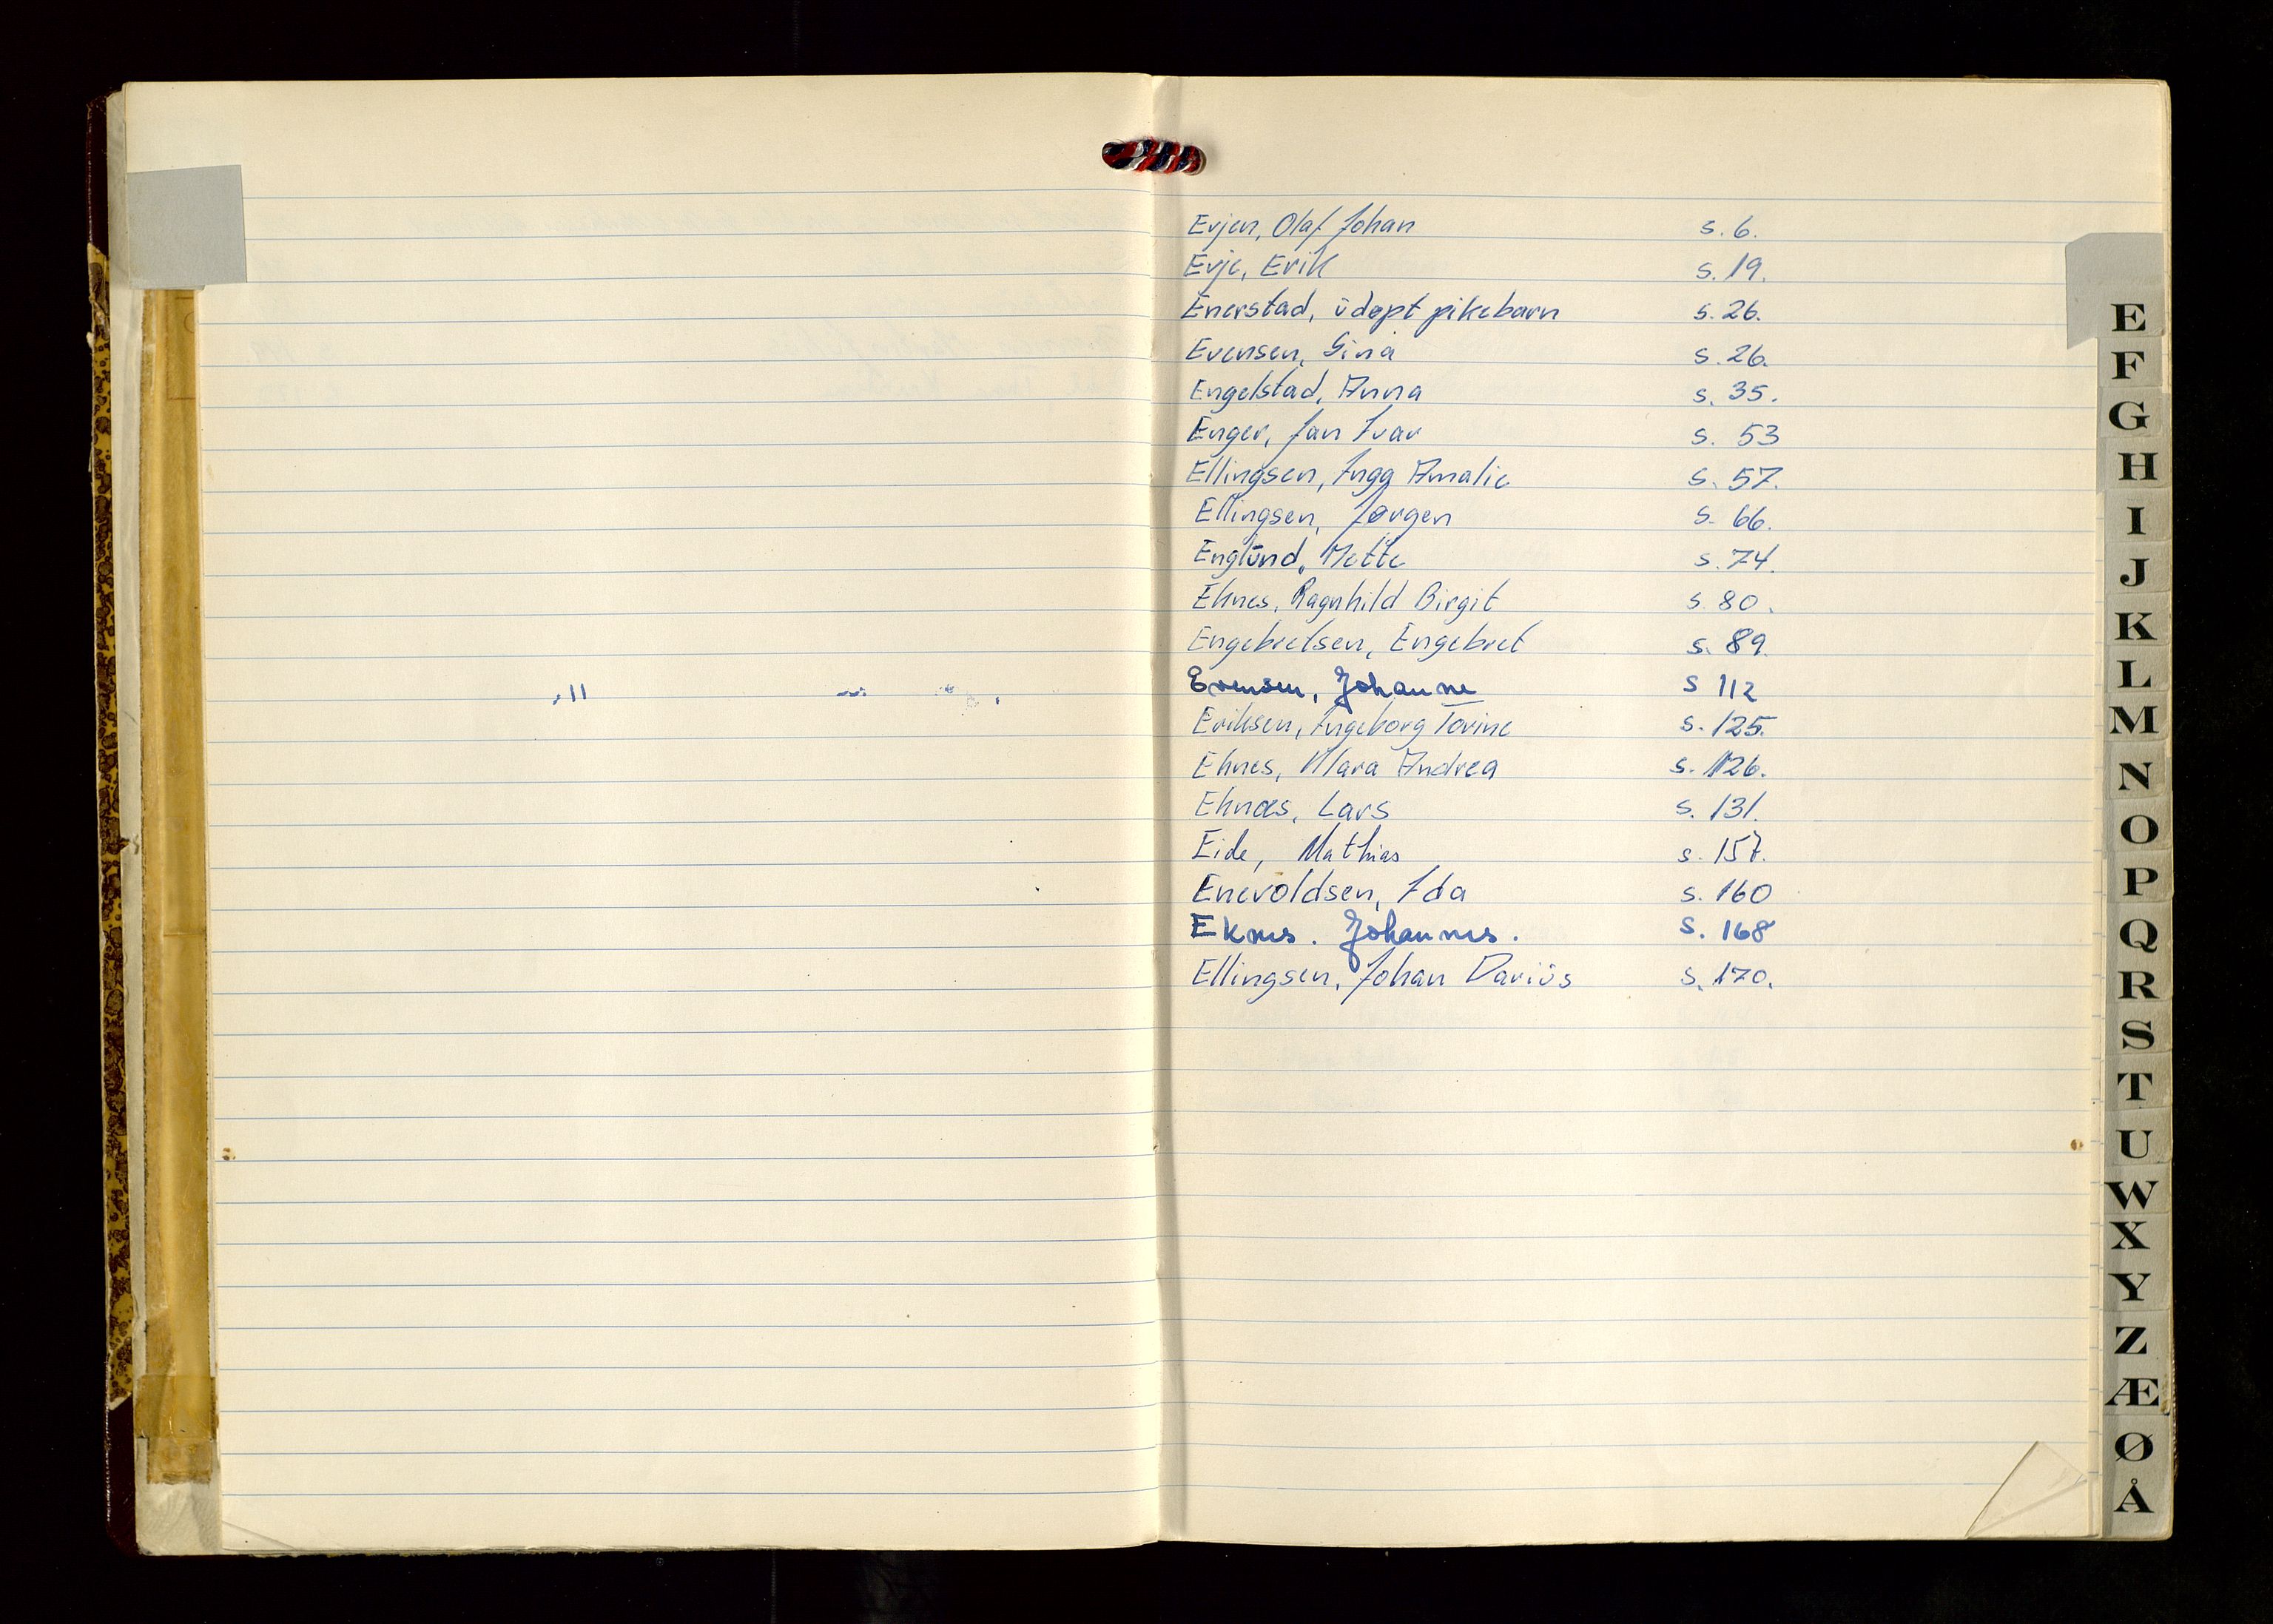 Evjen, Olaf Johan s. 6.
Evje, Erik s. 19.
Enerstad, ŭdøpt pikebarn s. 26.
Evensen, Gina s. 26.
Engelstad, Anna s. 35.
Enger, Jan Ivar s. 53
Ellingsen, Inga Amalie s. 57.
Ellingsen, Jørgen s. 66.
Englŭnd, Mette s. 74.
Eknes, Ragnhild Birgit s. 80.
Engebretsen, Engebret s. 89.
Evensen, Johanne s 112
Eriksen, Ingeborg Torine s. 125.
Eknes, Klara Andrea s. 126.
Eknæs, Lars s. 131.
Eide, Mathias s. 157.
Enevoldsen, Ida s. 160
Eknes. Johannes. s. 168
Ellingsen, Johan Dariŭs s. 170.
E
F
G
H
I
J
K
L
M
N
O
P
Q
R
S
T
U
W
X
Y
Z
Æ
Ø
Å